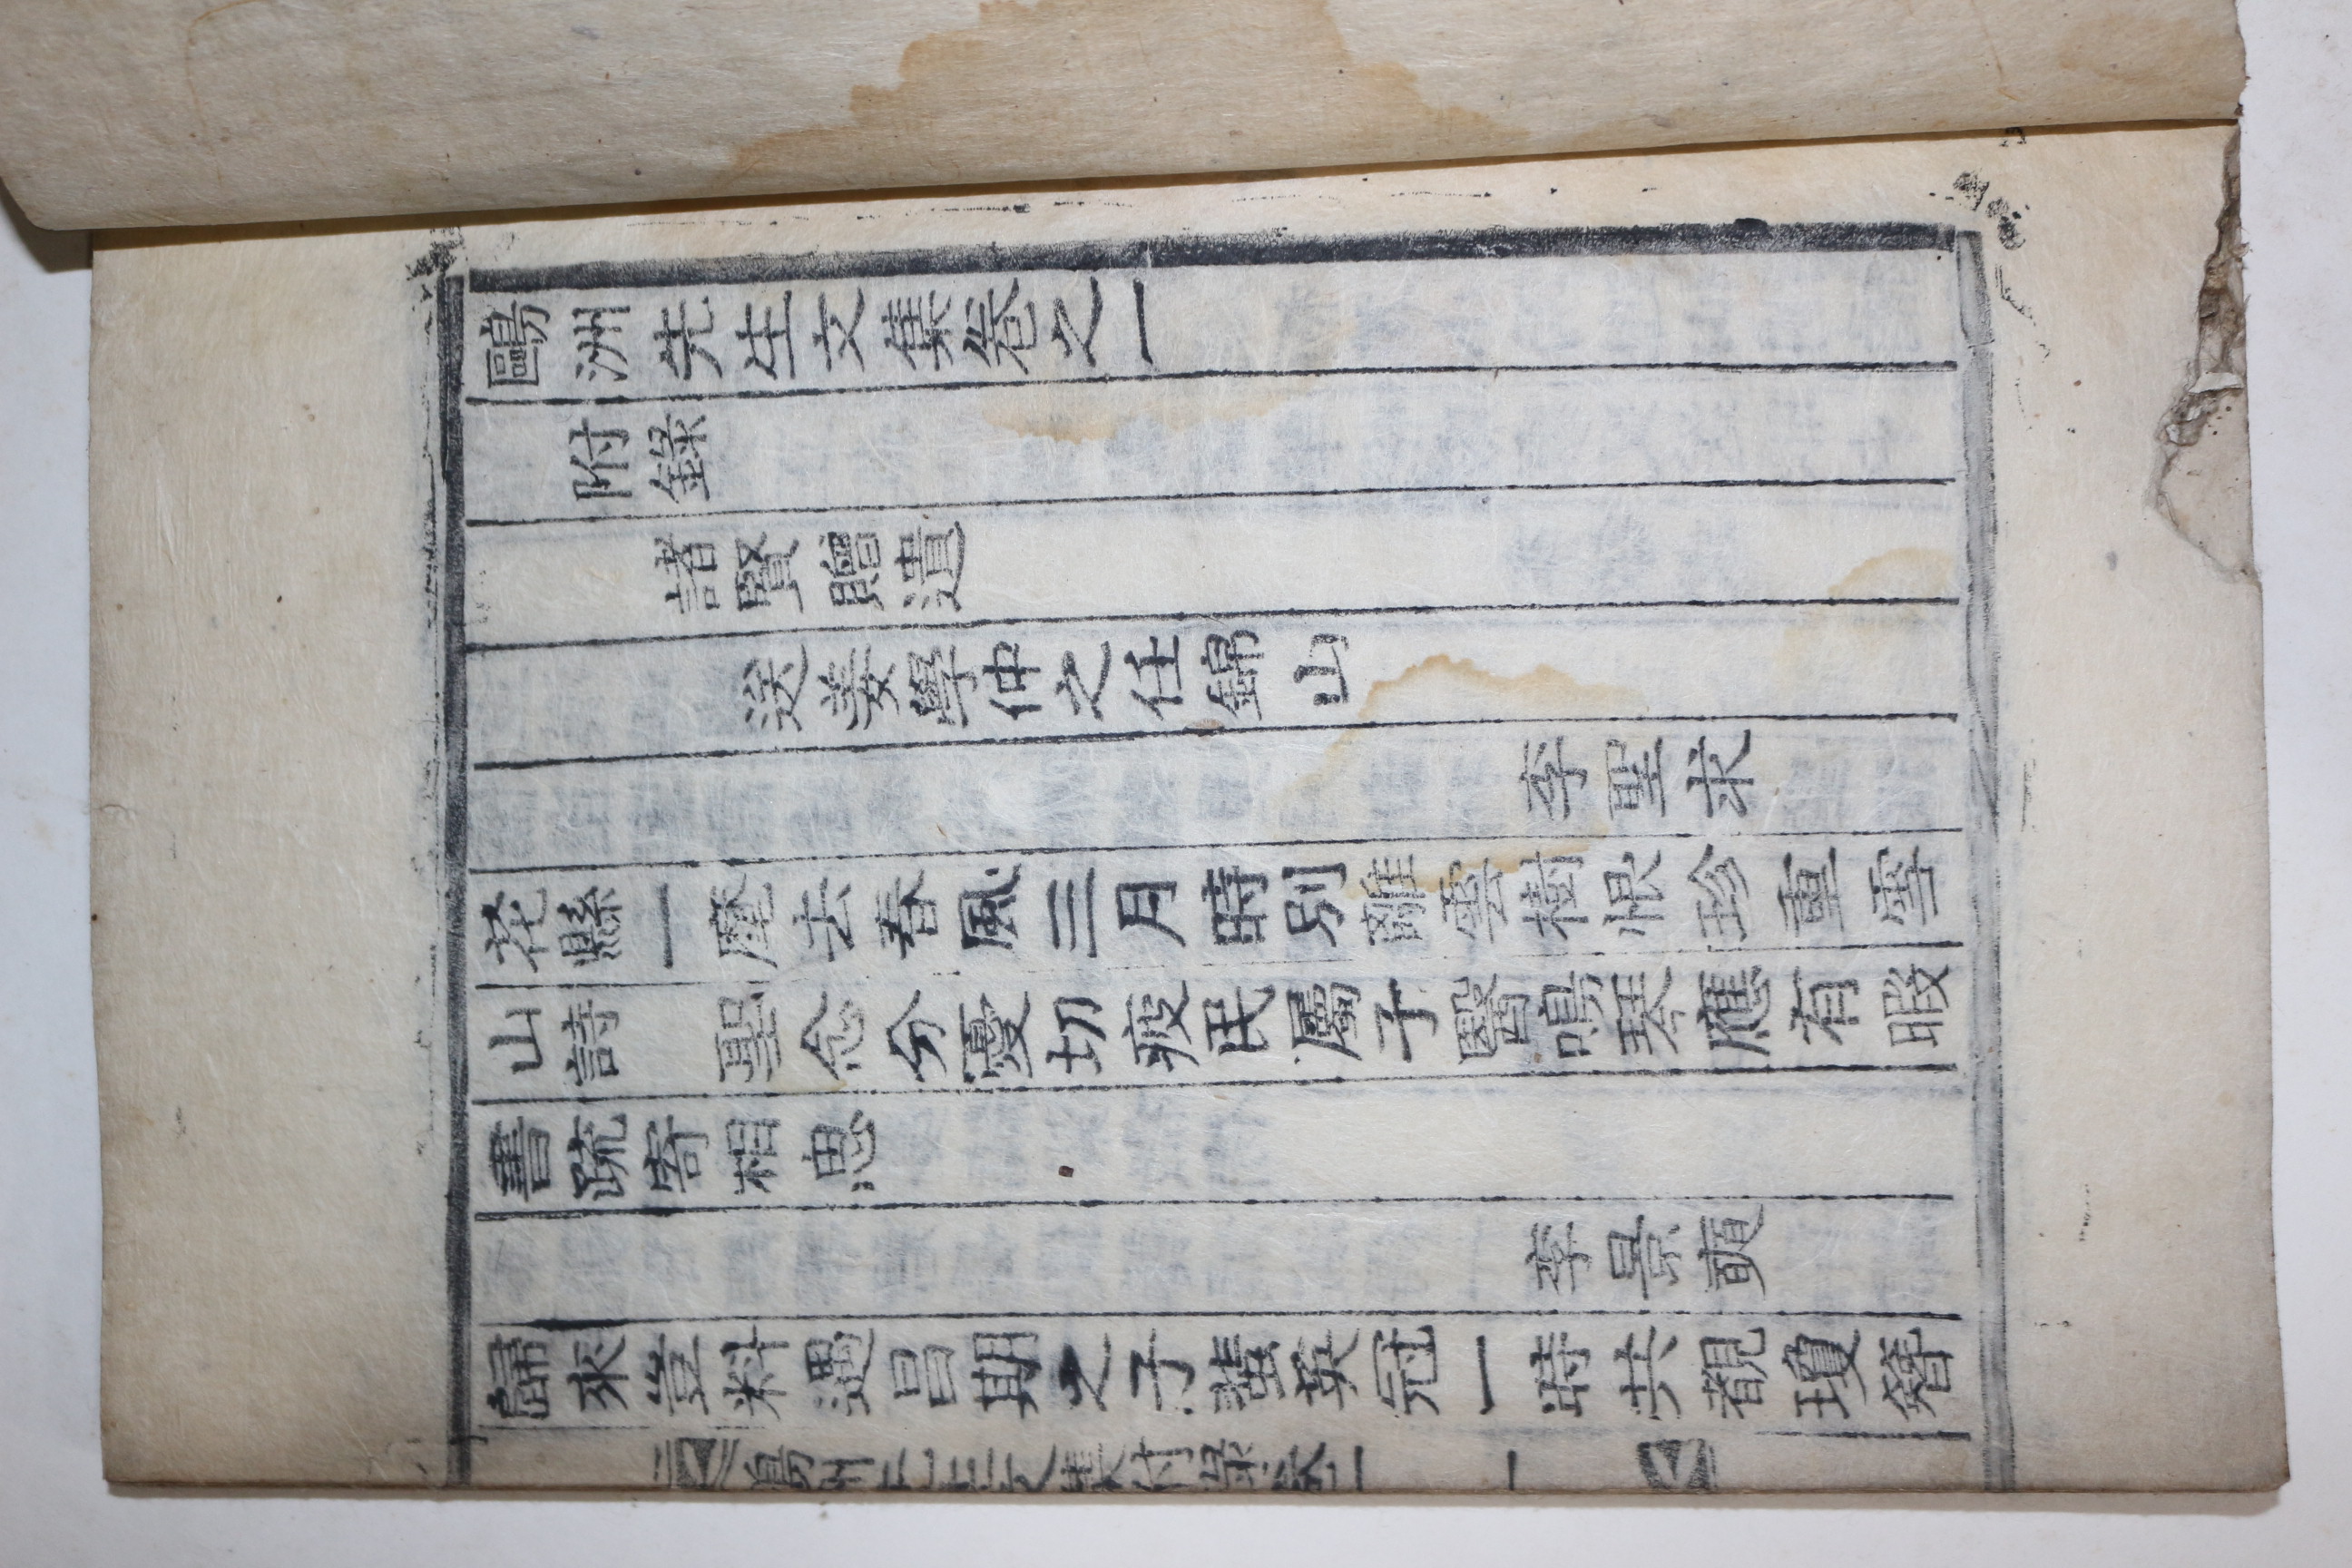 鷗洲先生文集卷之一
附錄
諸賢贈遺
送姜學仲之任錦山
李聖求
花縣一麾去春風三月時別離雲樹恨珍重雪
山詩 聖念分憂切疲民屬子醫鳴琴應有暇
書疏寄相思
李景奭
歸來豈料遇昌期之子蜚英冠一時共覩瓊簪
鷗洲先生文集付錄卷之一 一